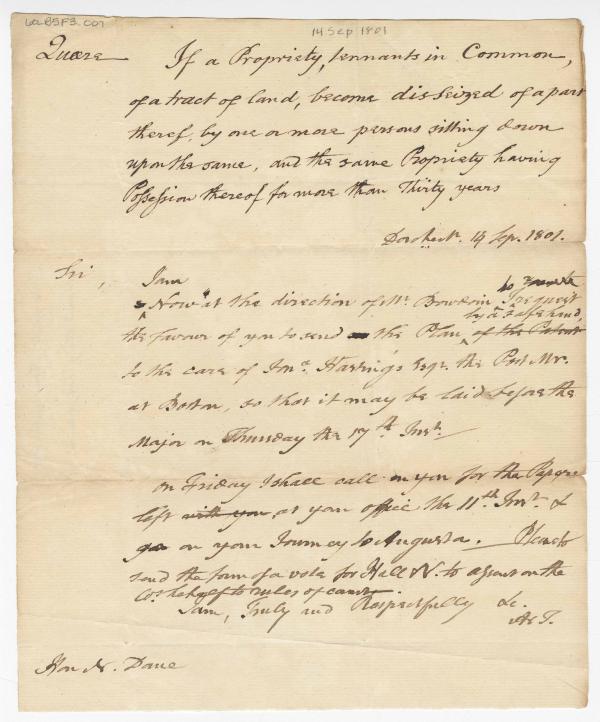 62.B5F3.C01
14 Sep 1801
Quære
If a Propriety, tennants in Common,
of a tract of land, become disseized of a part
thereof, by one or more persons sitting down
upon the same, and the same Propriety having
Possession thereof for more than Thirty years
Dorchestr. 14 Sep. 1801.
Sir,
I am
Now at the direction of Mr. Bowdoin to
I request
by a safe hand,
the favour of you to send the Plan of the Patent
to the care of Jona. Hastings Esqr. the Post Mr.
at Boston, so that it may be laid before the
Major on Thursday the 17th Inst.
on Friday I shall call on you for the Papers
left with you, at your office the 11th Inst. &
go on your Journey to Augusta. Please to
send the form of a vote for Hall N. to agree on the
Cos. behalf to rules of court.
I am, Truly and Respectfully &c.
Ar T.
Hon N. Dane